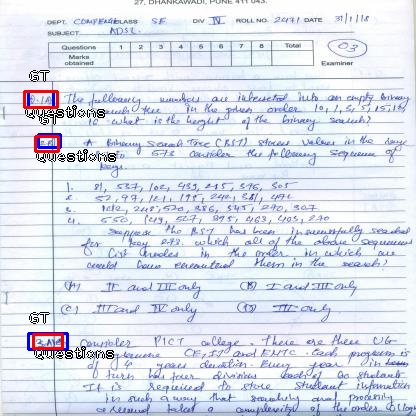 27, DHANKAWADI, PUNE 411 043.
DEPT. COMPENGG CLASS SE DIV IV ROLL NO. 2471 DATE 31/1/18
SUBJECT ADSL
Questions 1 2 3 4 5 6 7 8 Total 03
Marks obtained Examiner
GT
Q.1A) The following numbers are inserted into an empty binary
Questions search tree in the given order 10, 1, 3, 5, 15, 12,
16 what is the height of the binary search?
GT
A Binary Search Tree (BST) stores values in the range
Questions to 573 consider the following sequence of
keys.
1. 81, 537, 102, 439, 285, 376, 305
2. 52, 97, 121, 195, 242, 381, 472
3. 142, 248, 520, 386, 345, 270, 307
4. 550, 149, 507, 395, 463, 402, 270
Suppose the BST has been successfully searched
for key 273. which all of the above sequences
list nodes in the order in which we
could have encountered them in the search?
(A) II and III only (B) I and III only
(C) III and IV only (D) III only
GT
Consider PICT college. There are three UG
Questions programme CE, IT and ENTC. Each program is
of 4 years duration. Every year in
turn has four division each of 60 students.
It is required to store student information
in such a way that searching and
a complexity of the order